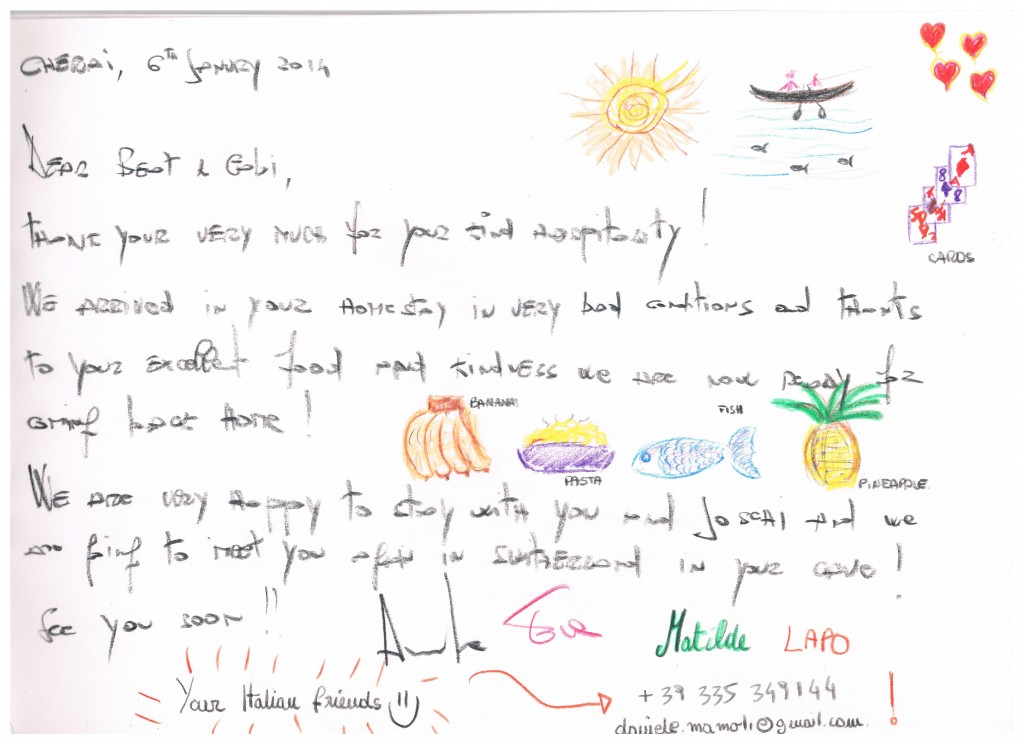 CHERAI, 6TH JANURY 2014
DEAR BEAT & GABI,
THANK YOUR VERY MUCH FOR YOUR KIND HOSPITALITY!
CARDS
WE ARRIVED IN YOUR HOMESTAY IN VERY BAD CONDITIONS AND THANKS
TO YOUR EXCELLENT FOOD AND KINDNESS WE ARE NOW READY FOR
BANANAS
FISH
COMING BACK HOME!
PASTA
PINEAPPLE
WE ARE VERY HAPPY TO STAY WITH YOU AND JOSCHI AND WE
TO MEET YOU AGAIN IN SWITZERLAND IN YOUR
SEE YOU SOON!!
Eva
Matilde LAPO
Your Italian friends
+39 335 349144 !
daniele.mamoli@gmail.com